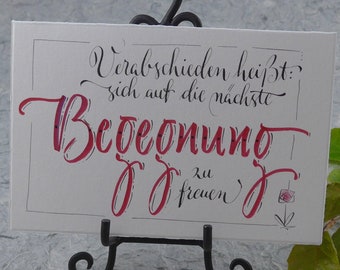 Verabschieden heißt:
sich auf die nächste
Begegnung
zu
freuen